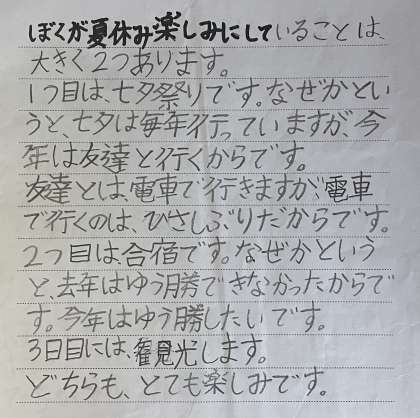 ぼくが夏休み楽しみにしていることは、
大きく2つあります。
1つ目は、七夕祭りです。なぜかとい
うと、七夕は毎年行っていますが、今
年は友達と行くからです。
友達とは、電車で行きますが、電車
で行くのは、ひさしぶりだからです。
2つ目は、合宿です。なぜかという
と、去年はゆう勝できなかったからで
す。今年はゆう勝したいです。
3日目には、観光します。
どちらも、とても楽しみです。